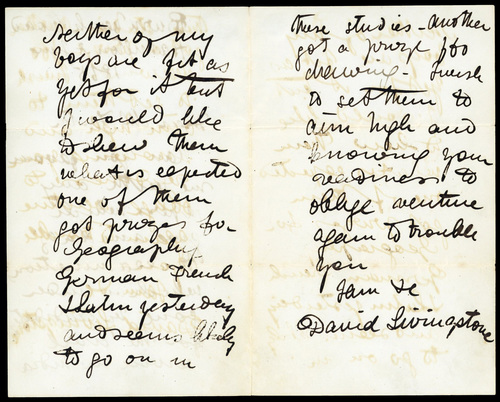 Neither of my
boys are fit as
yet for it but
I would like
to shew them
what is expected
one of them
got prizes for
Geography
German French
& Latin yesterday
and seems likely
to go on in
these studies - another
got a prize for
drawing - I wish
to set them to
aim high and
knowing your
readiness to
oblige venture
again to trouble
you
I am &c
David Livingstone